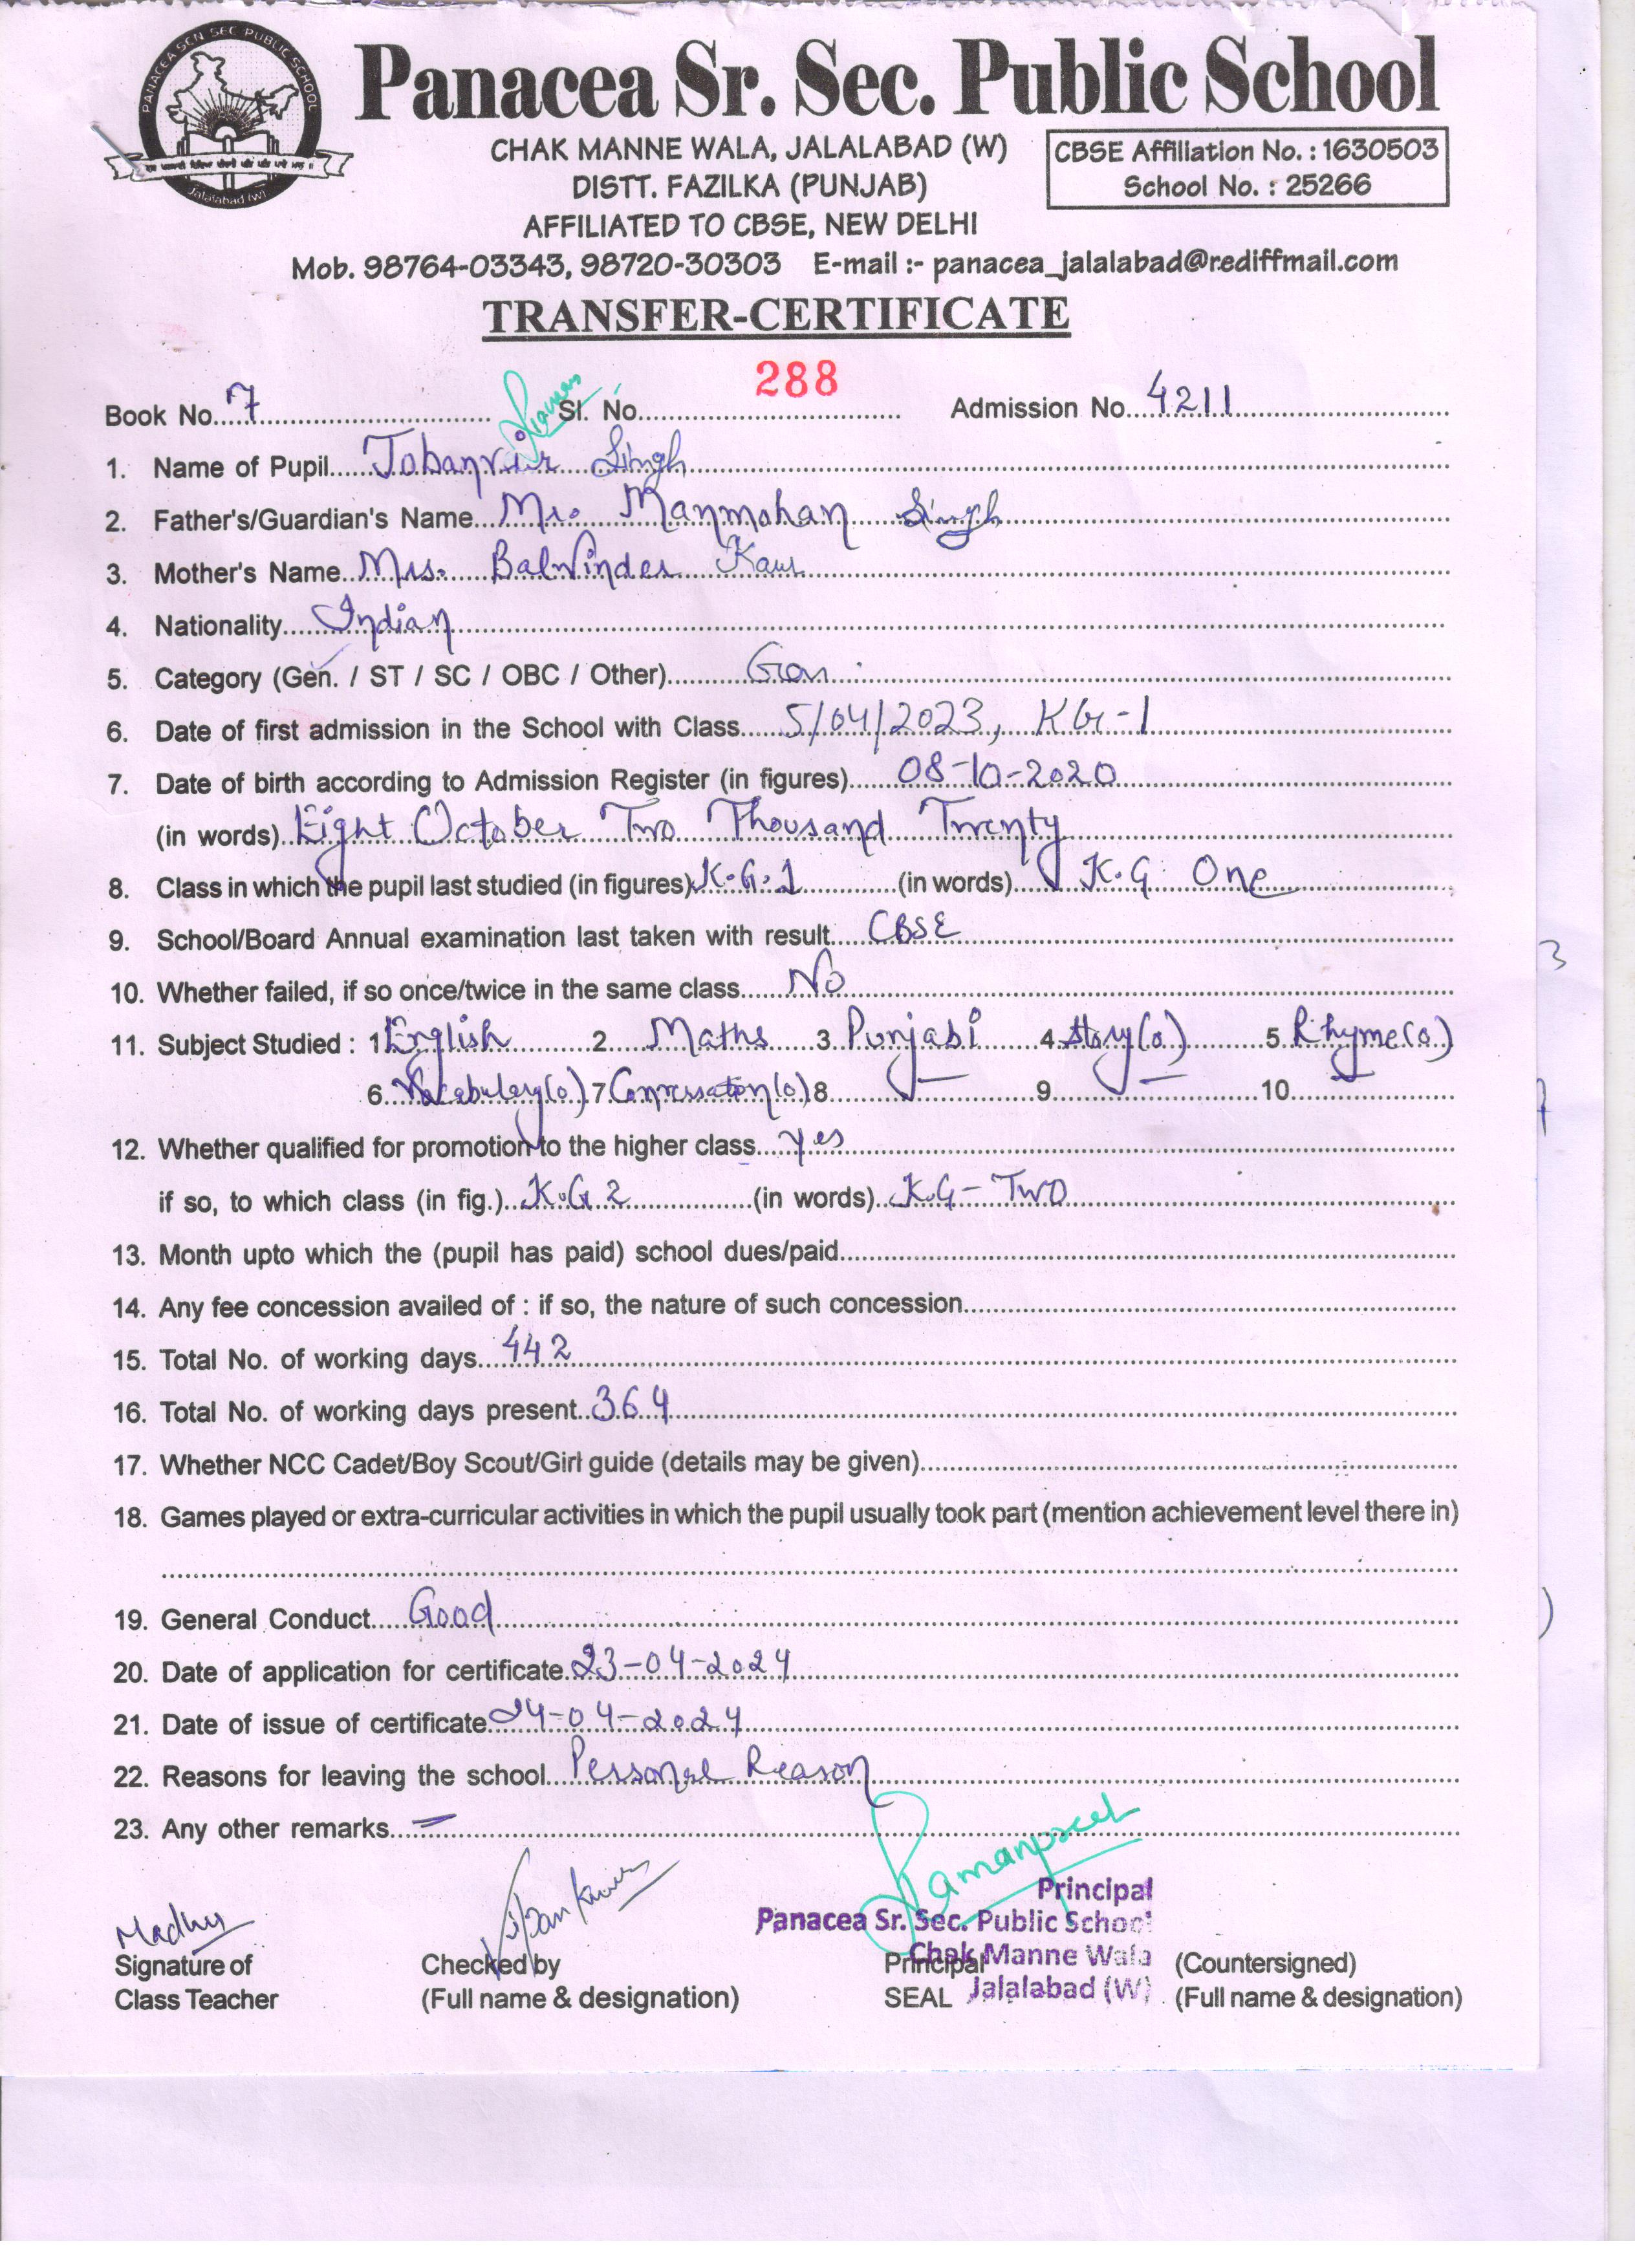 PANACEA SCN SEC PUBLIC SCHOOL
Jalalabad (W)
Panacea Sr. Sec. Public School
CHAK MANNE WALA, JALALABAD (W)
DISTT. FAZILKA (PUNJAB)
AFFILIATED TO CBSE, NEW DELHI
CBSE Affiliation No. : 1630503
School No. : 25266
Mob. 98764-03343, 98720-30303 E-mail :- panacea_jalalabad@rediffmail.com
TRANSFER-CERTIFICATE
Book No. 7 Sl. No. 288 Admission No. 4211
1. Name of Pupil Jobanvir Singh
2. Father's/Guardian's Name Mr. Manmohan Singh
3. Mother's Name Mrs. Balwinder Kaur
4. Nationality Indian
5. Category (Gen. / ST / SC / OBC / Other) Gen.
6. Date of first admission in the School with Class 5/04/2023, KG-1
7. Date of birth according to Admission Register (in figures) 08-10-2020
(in words) Eight October Two Thousand Twenty
8. Class in which the pupil last studied (in figures) K.G.1 (in words) K.G. One
9. School/Board Annual examination last taken with result CBSE
10. Whether failed, if so once/twice in the same class No
11. Subject Studied : 1 English 2 Maths 3 Punjabi 4 Story(o) 5 Rhyme(o)
6 Vocabulery(o) 7 Conversation(o) 8 — 9 — 10 —
12. Whether qualified for promotion to the higher class yes
if so, to which class (in fig.) K.G.2 (in words) K.G-Two
13. Month upto which the (pupil has paid) school dues/paid
14. Any fee concession availed of : if so, the nature of such concession
15. Total No. of working days 442
16. Total No. of working days present 364
17. Whether NCC Cadet/Boy Scout/Girl guide (details may be given)
18. Games played or extra-curricular activities in which the pupil usually took part (mention achievement level there in)
19. General Conduct Good
20. Date of application for certificate 23-04-2024
21. Date of issue of certificate 24-04-2024
22. Reasons for leaving the school Personal Reason
23. Any other remarks —
Madhu
Ramanpreet
Principal
Panacea Sr. Sec. Public School
Chak Manne Wala
Jalalabad (W)
Signature of Checked by Principal (Countersigned)
Class Teacher (Full name & designation) SEAL (Full name & designation)